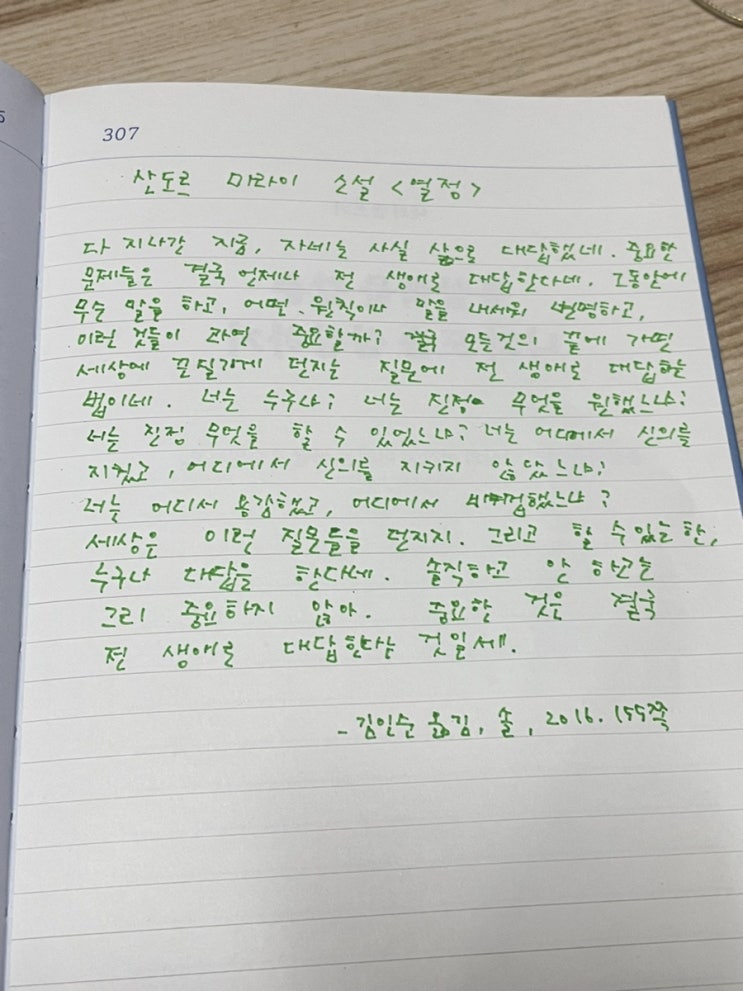 307
산도르 마라이 소설 <열정>
다 지나간 지금, 자네는 사실 삶으로 대답했네. 중요한
문제들은 결국 언제나 전 생애로 대답한다네. 그동안에
무슨 말을 하고, 어떤 원칙이나 말을 내세워 변명하고,
이런 것들이 과연 중요할까? 결국 모든것의 끝에 가면
세상에 끈질기게 던지는 질문에 전 생애로 대답하는
법이네. 너는 누구냐? 너는 진정 무엇을 원했느냐?
너는 진정 무엇을 할 수 있었느냐? 너는 어디에서 신의를
지켰고, 어디에서 신의를 지키지 않았느냐?
너는 어디서 용감했고, 어디에서 비겁했느냐?
세상은 이런 질문들을 던지지. 그리고 할 수 있는 한,
누구나 대답을 한다네. 솔직하고 안 하고는
그리 중요하지 않아. 중요한 것은 결국
전 생애로 대답한다는 것일세.
- 김인순 옮김, 솔, 2016. 155쪽